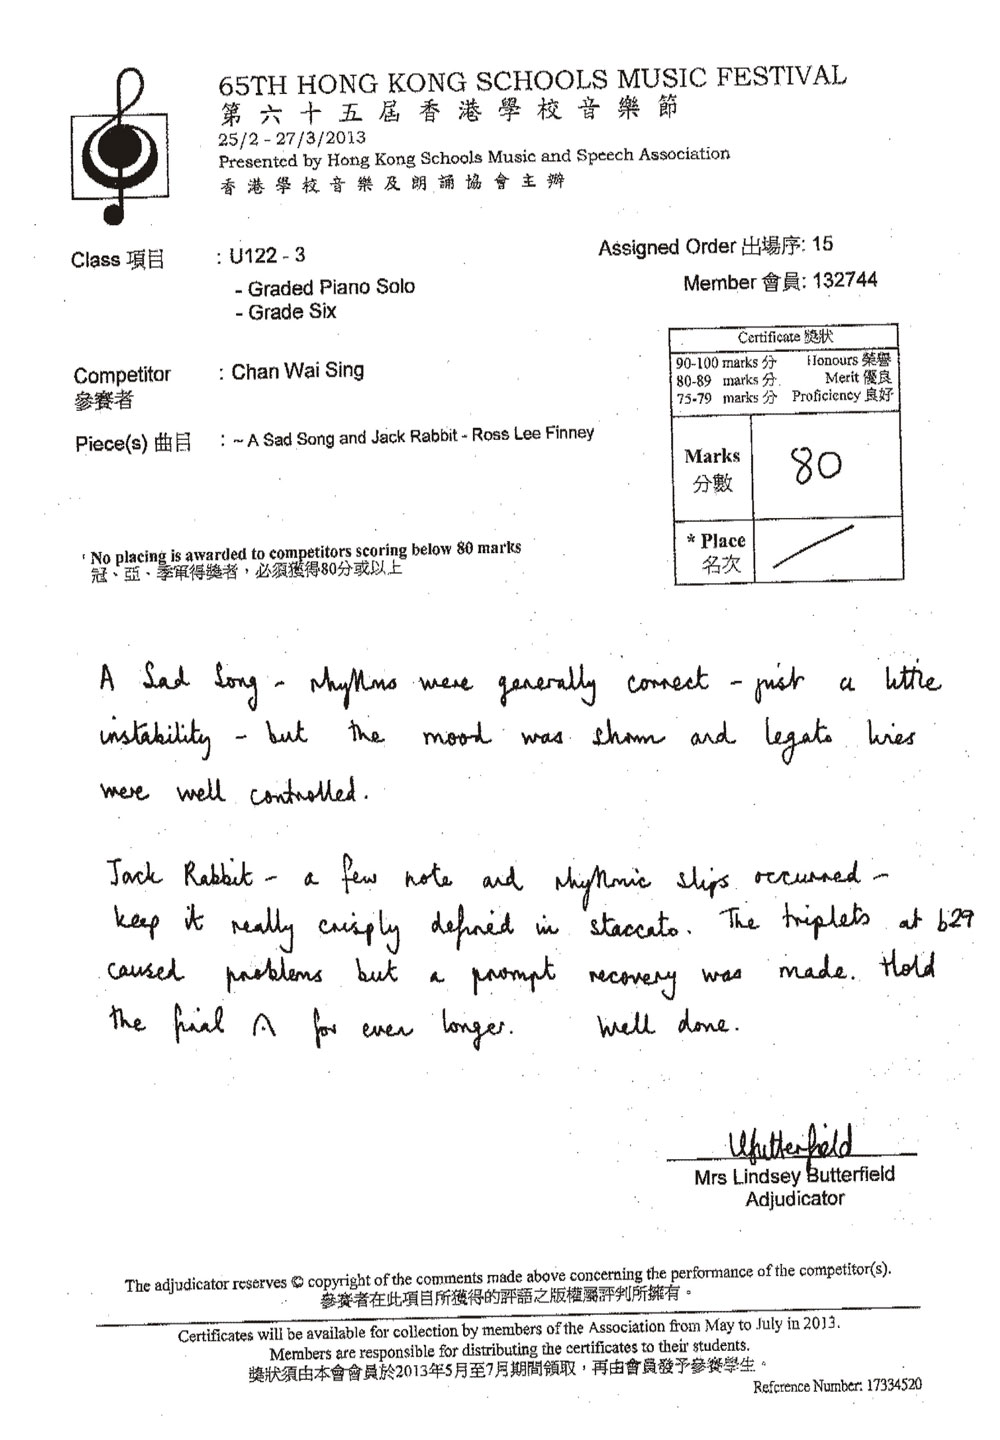 65TH HONG KONG SCHOOLS MUSIC FESTIVAL
第六十五屆香港學校音樂節
25/2 - 27/3/2013
Presented by Hong Kong Schools Music and Speech Association
香港學校音樂及朗誦協會主辦
Class 項目 : U122 - 3
- Graded Piano Solo
- Grade Six
Assigned Order 出場序: 15
Member 會員: 132744
Competitor : Chan Wai Sing
參賽者
Piece(s) 曲目 : ~ A Sad Song and Jack Rabbit - Ross Lee Finney
Certificate 獎狀
90-100 marks 分 Honours 榮譽
80-89 marks 分 Merit 優良
75-79 marks 分 Proficiency 良好
Marks 80
分數
* Place
名次
* No placing is awarded to competitors scoring below 80 marks
冠、亞、季軍得獎者，必須獲得80分或以上
A Sad Song - rhythms were generally correct - just a little
instability - but the mood was shown and legato lines
were well controlled.
Jack Rabbit - a few note and rhythmic slips occurred -
keep it really crisply defined in staccato. The triplets at b29
caused problems but a prompt recovery was made. Hold
the final ⌒ for even longer. Well done.
LButterfield
Mrs Lindsey Butterfield
Adjudicator
The adjudicator reserves © copyright of the comments made above concerning the performance of the competitor(s).
參賽者在此項目所獲得的評語之版權屬評判所擁有。
Certificates will be available for collection by members of the Association from May to July in 2013.
Members are responsible for distributing the certificates to their students.
獎狀須由本會會員於2013年5月至7月期間領取，再由會員發予參賽學生。
Reference Number: 17334520